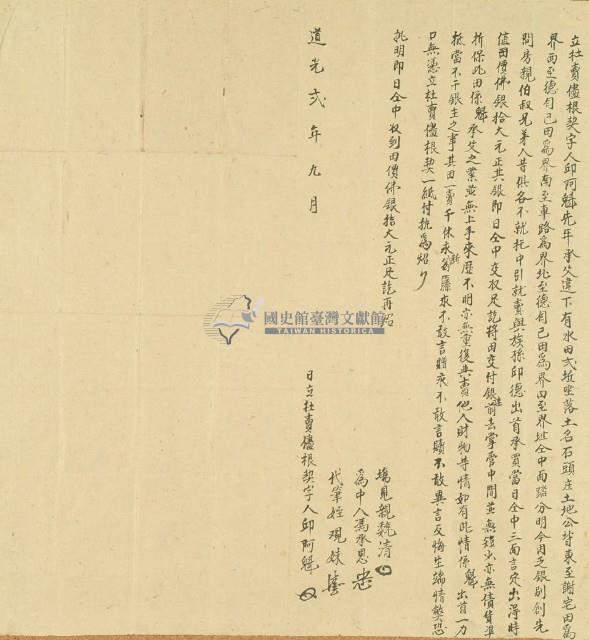 立杜賣儘根契字人邱阿魁先年承父遺下有水田弍坵坐落土名石頭庄土地公背東至謝宅田為
界西至德自己田為界南至車路為界北至德自己田為界四至界址仝中面踏分明今因乏銀別創先
問房親伯叔兄弟人等俱各不就托中引就賣與族孫邱德出首承買當日仝中三面言定出得時
值田價佛銀拾大元正其銀即日仝中交收足訖將田交付銀主前去掌管中間並無短少亦無債貨準
折保此田係魁承父之業並無上手來歷不明亦無重復典賣他人財物等情如有此情係魁出首一力
抵當不干銀主之事其田一賣千休永斷葛藤永不敢言贈永不敢言贖不敢異言反悔生端情弊恐
口無憑立杜賣儘根契一紙付執為炤
批明即日仝中收到田價佛銀拾大元正足訖再炤
場見親魏清
為中人馮承恩
代筆姪現妹
道光弍年九月
日立杜賣儘根契字人邱阿魁
國史館臺灣文獻館
TAIWAN HISTORICA